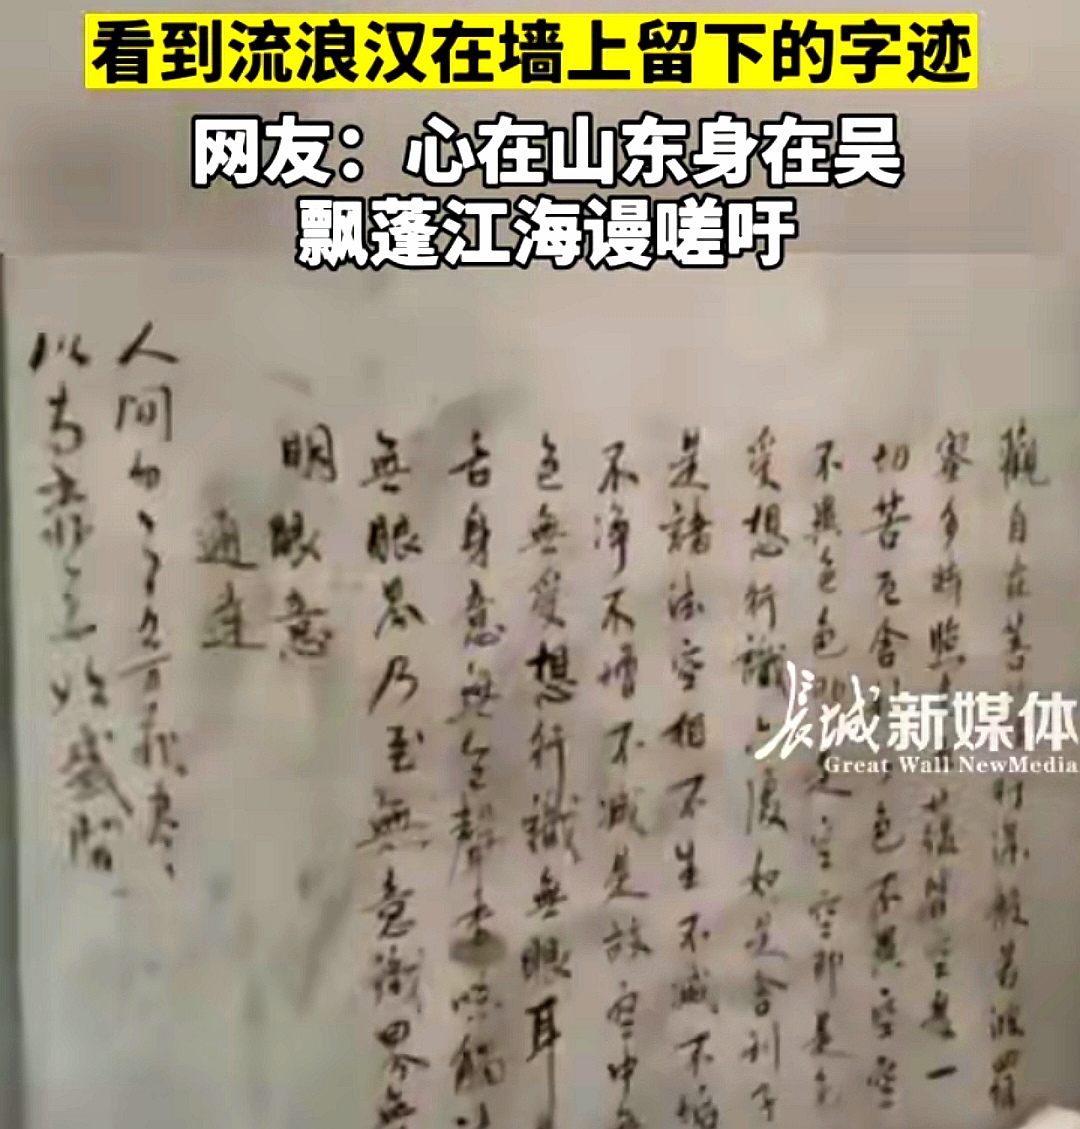 看到流浪汉在墙上留下的字迹
网友：心在山东身在吴
飘蓬江海谩嗟吁
長城新媒体
Great Wall NewMedia
觀自在菩 时深般若波羅
蜜多時照 蘊皆空度一
切苦厄舍 色不異空空
不異色色 是空空即是色
受想行識亦復如是舍利子
是諸法空相不生不滅不垢
不淨不增不減是故空中
色無受想行識無眼耳
舌身意無色聲香味觸
無眼界乃至無意識界無
明眼意
通達
人間
以